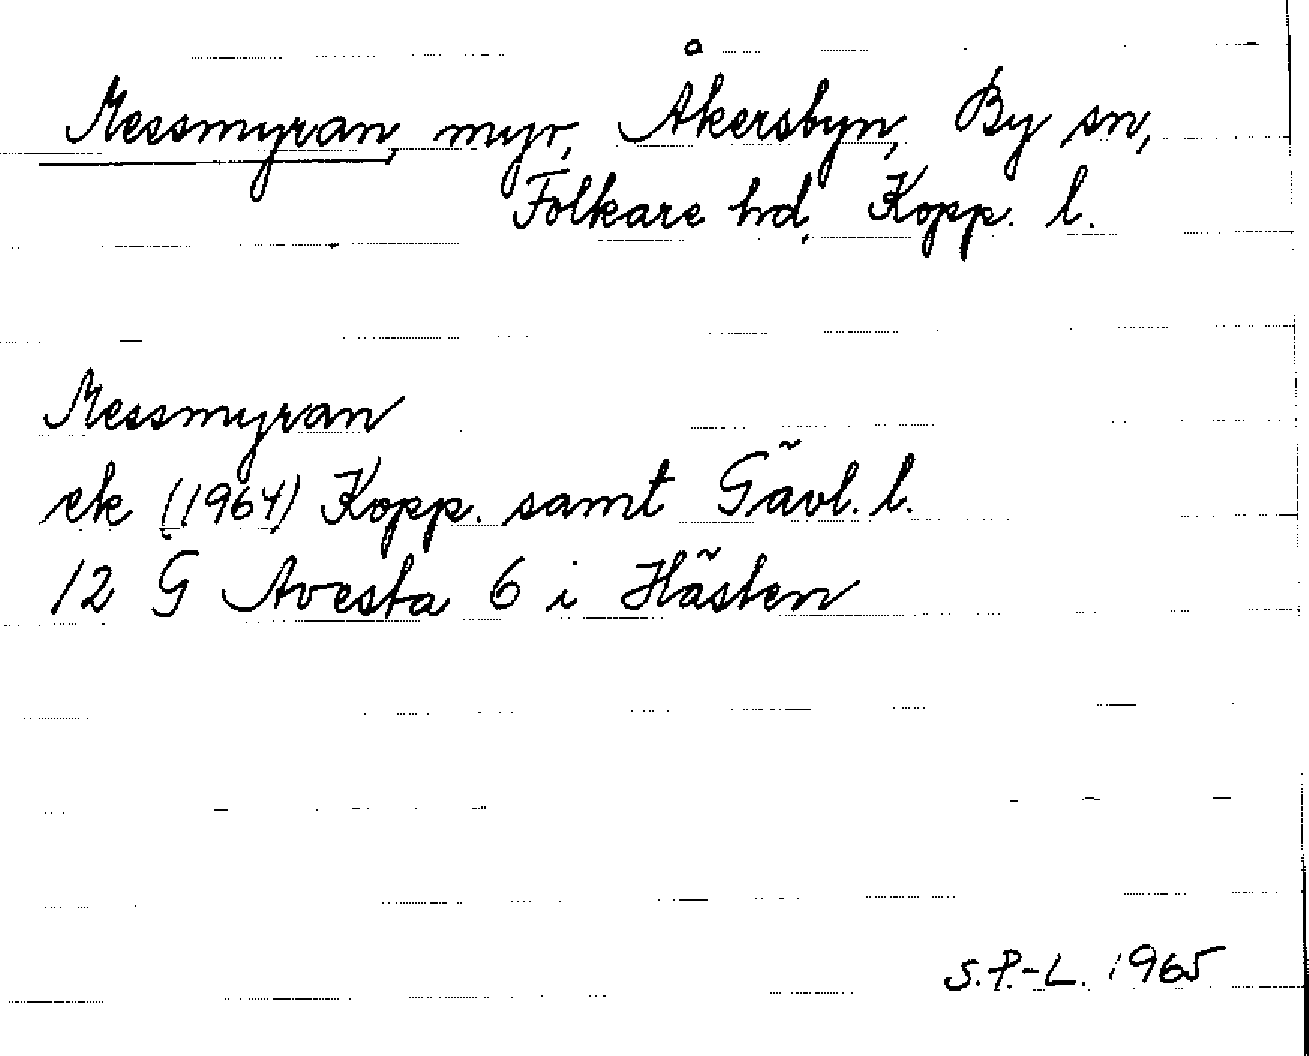 Messmyran, myr, Åkersbyn, By sn,
Folkare hd, Kopp. l.
Messmyran
ek (1964) Kopp. samt Gävl. l.
12 G Avesta 6 i Hästen
S.P.-L. 1965